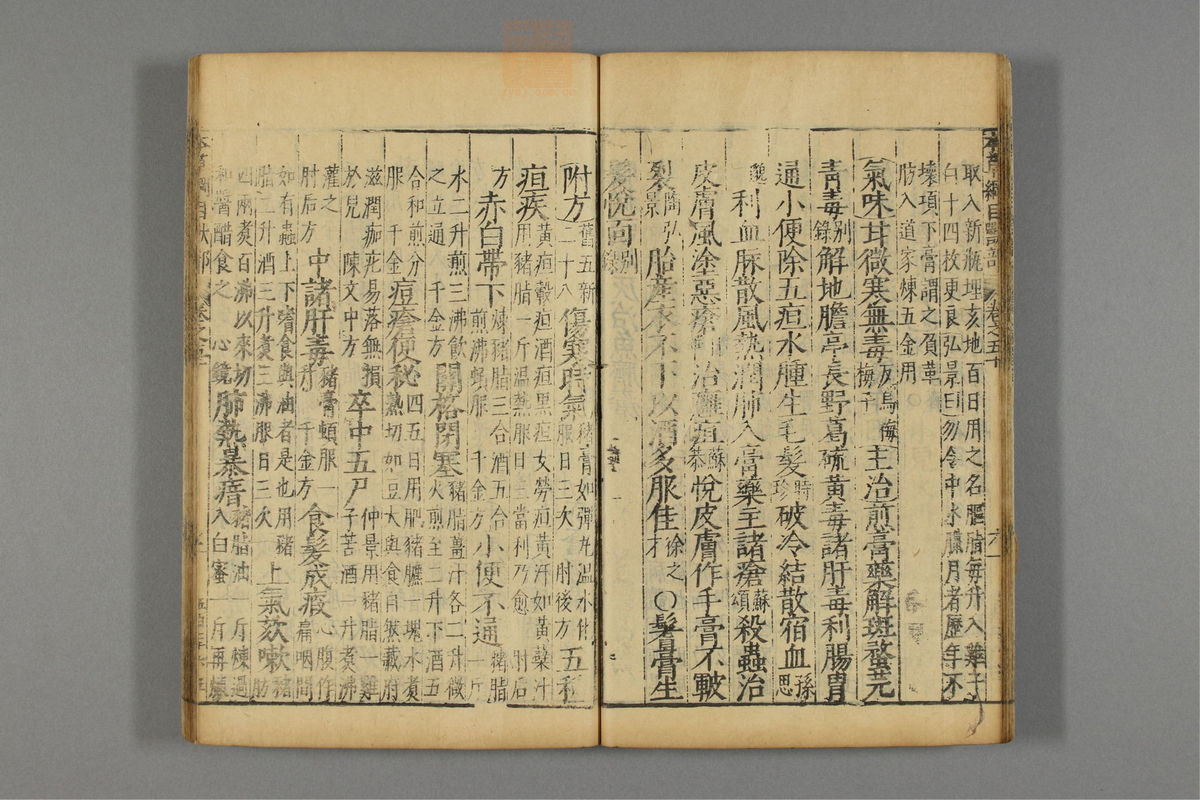 本草綱目獸部 卷之五十
取入新瓶埋亥地百日用之名𦞦脂每升入雞子
白十四枚更良弘景曰勿令中水臘月者歷年不
壞項下膏謂之負革
肪入道家煉五金用
氣味甘微寒無毒反烏梅梅子主治煎膏藥解斑蝥芫
青毒別錄解地膽亭長野葛硫黃毒諸肝毒利腸胃
通小便除五疸水腫生毛髮時珍破冷結散宿血孫思
利血脉散風熱潤肺入膏藥主諸瘡蘇頌殺蟲治
皮膚風塗惡瘡 治癰疽蘇恭悅皮膚作手膏不皸
裂陶弘景胎產衣不下以酒多服佳徐之才○鬐膏生
髮悅面別錄
附方舊五新二十八傷寒時氣豬膏如彈丸溫水化服日三次 肘後方五種
疸疾黃疸穀疸酒疸黑疸女勞疸黃汗如黃蘗汁用豬脂一斤溫熱服日三當利乃愈 肘后
方赤白帶下煉豬脂三合酒五合煎沸頓服 千金方小便不通豬脂一斤
水二升煎三沸飲之立通 千金方關格閉塞豬脂薑汁各二升微火煎至二升下酒五
合和煎分服 千金痘瘡便秘四五日用肥豬膘一塊水煮熟切如豆大與食自然臟府
滋潤痂疕易落無損於兒 陳文中方卒中五尸仲景用豬脂一雞子苦酒一升煮沸
灌之肘后方中諸肝毒豬膏頓服一升 千金方食髮成瘕心腹作痛咽間
如有蟲上下嗜食與油者是也用豬脂二升酒三升煮三沸服日三次上氣欬嗽豬肪
四兩煮百沸以來切和醬醋食之 心鏡肺熱暴瘖豬脂油一斤煉過入白蜜一斤再煉